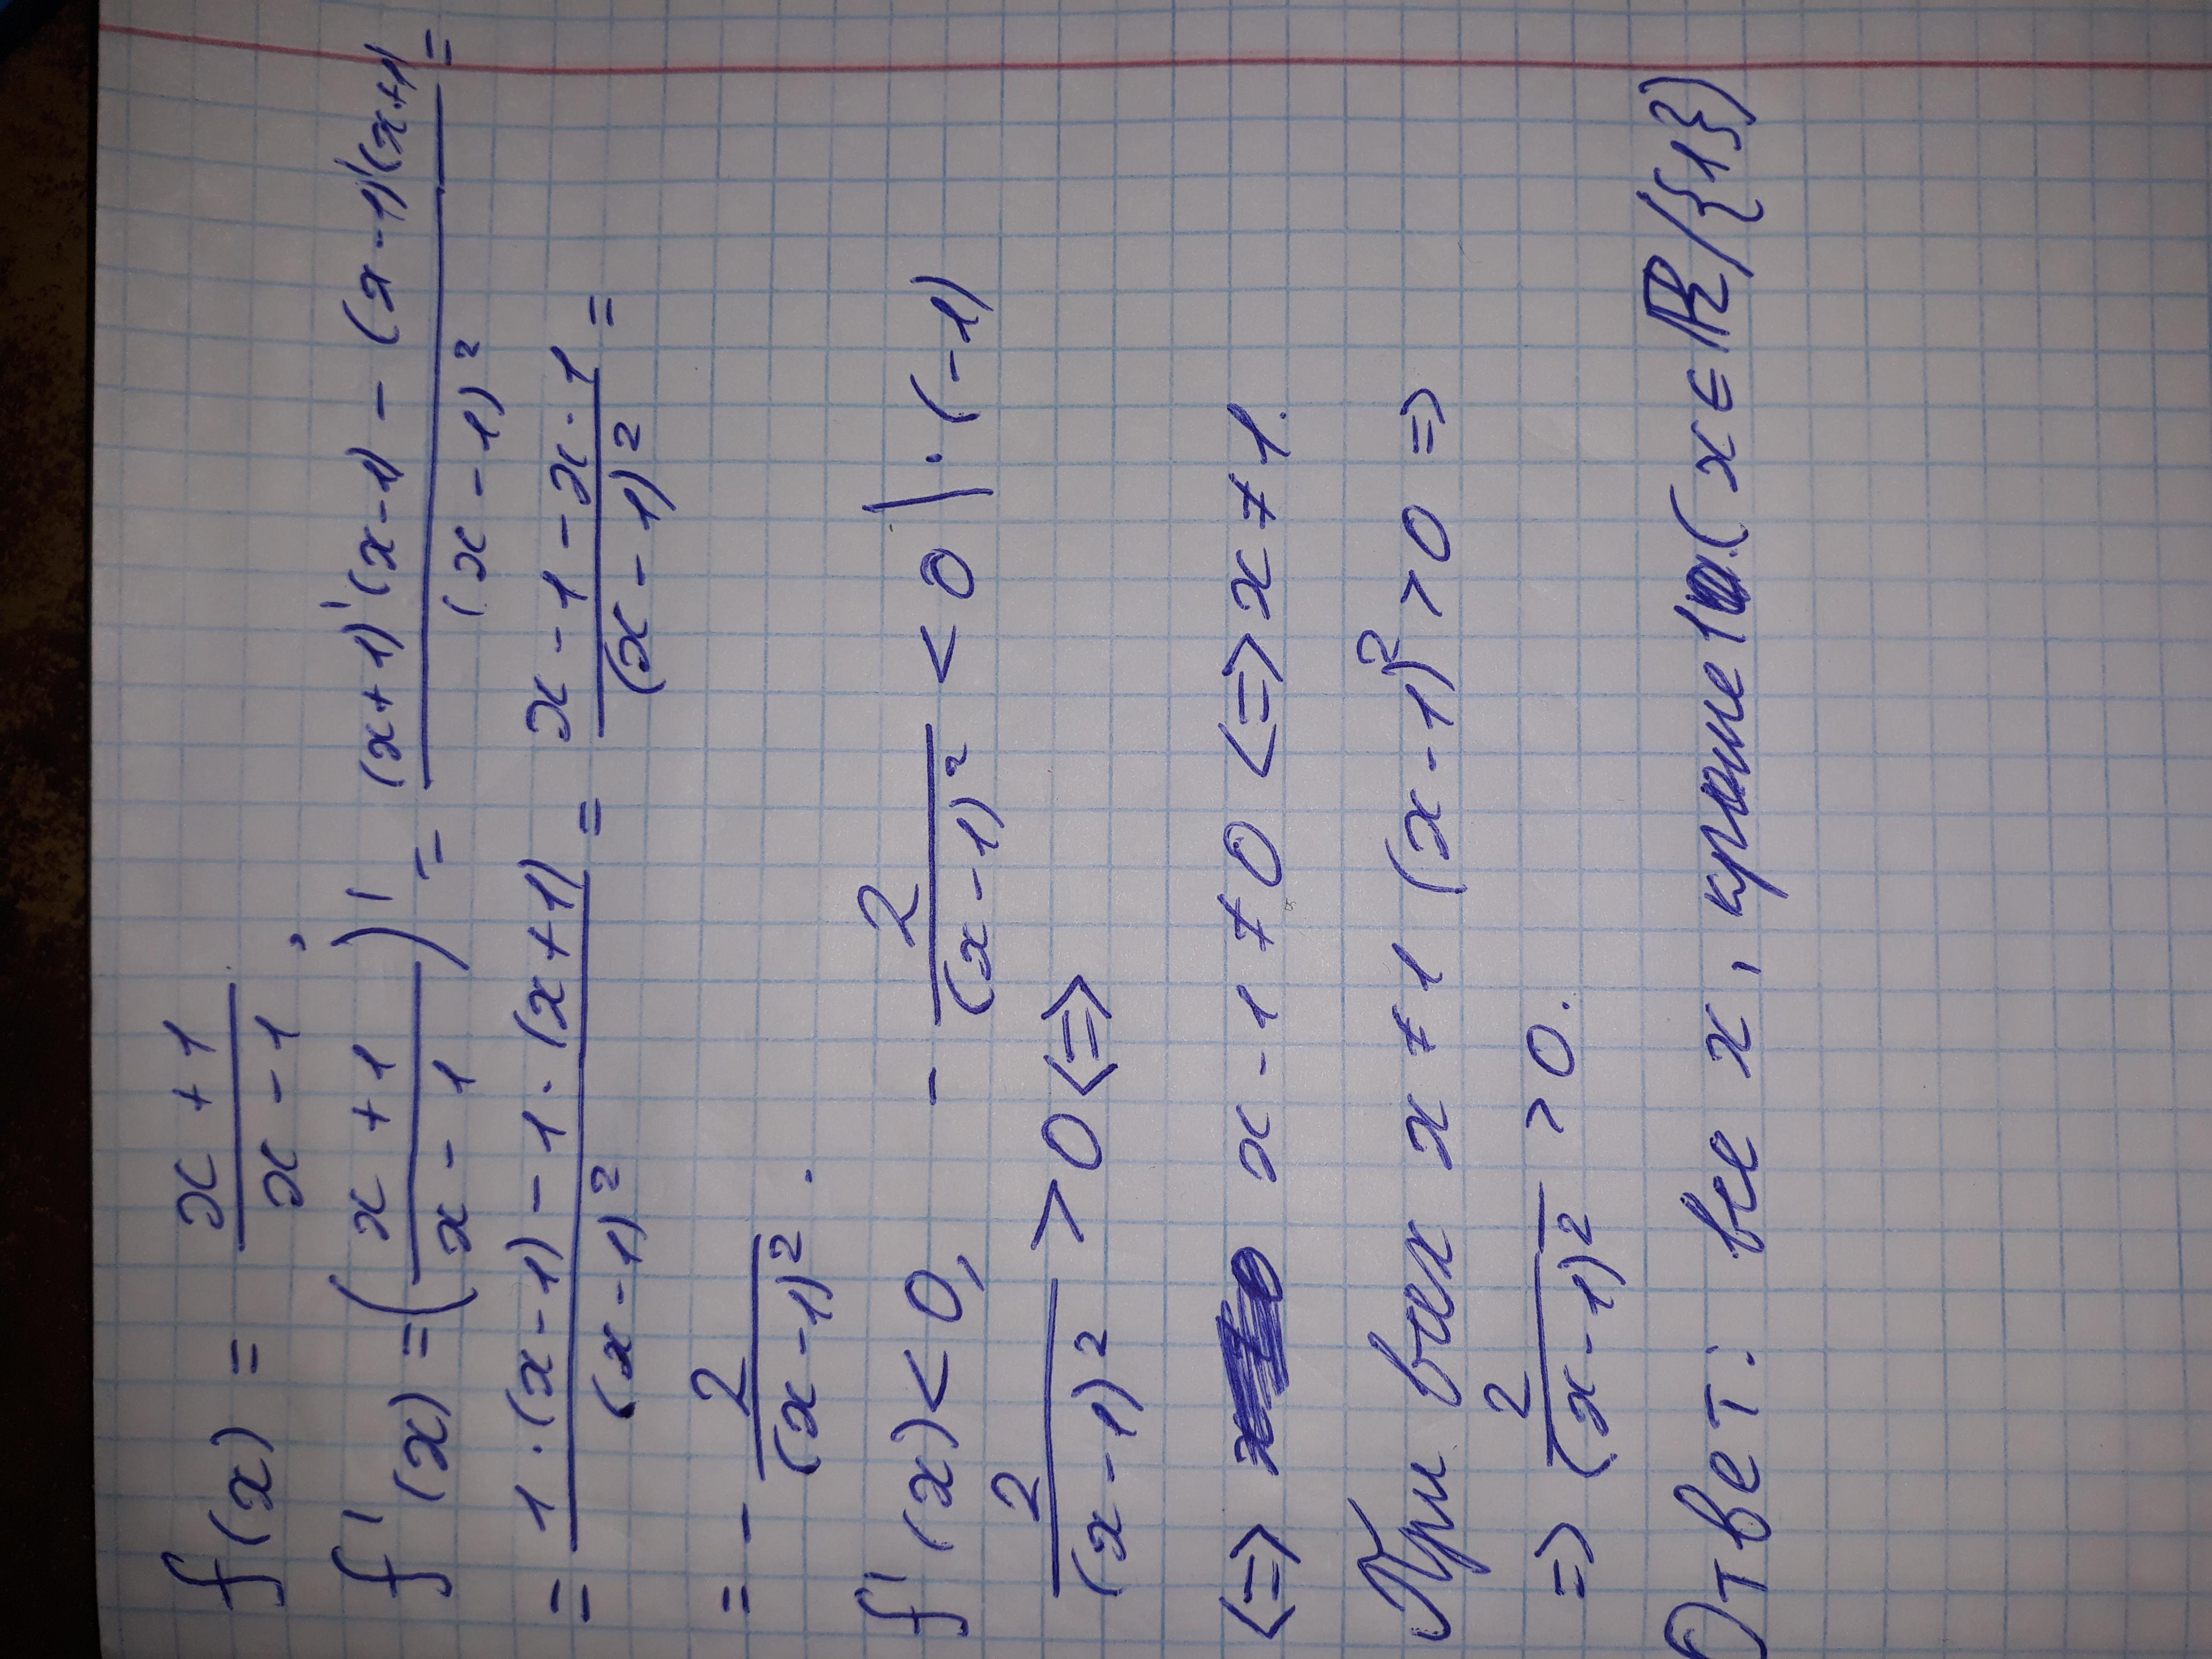 f(x) = (x+1)/(x-1) ,
f'(x) = ((x+1)/(x-1))' = ((x+1)'(x-1) - (x-1)'(x+1))/(x-1)² =
= (1·(x-1) - 1·(x+1))/(x-1)² = (x-1-x·1)/(x-1)² =
= - 2/(x-1)² .
f'(x) < 0, - 2/(x-1)² < 0 | · (-1)
2/(x-1)² > 0 <=>
<=> x-1 ≠ 0 <=> x ≠ 1.
При всех x ≠ 1 (x-1)² > 0 =>
=> 2/(x-1)² > 0.
Ответ: все x, кроме 1 (x ∈ ℝ/{1})